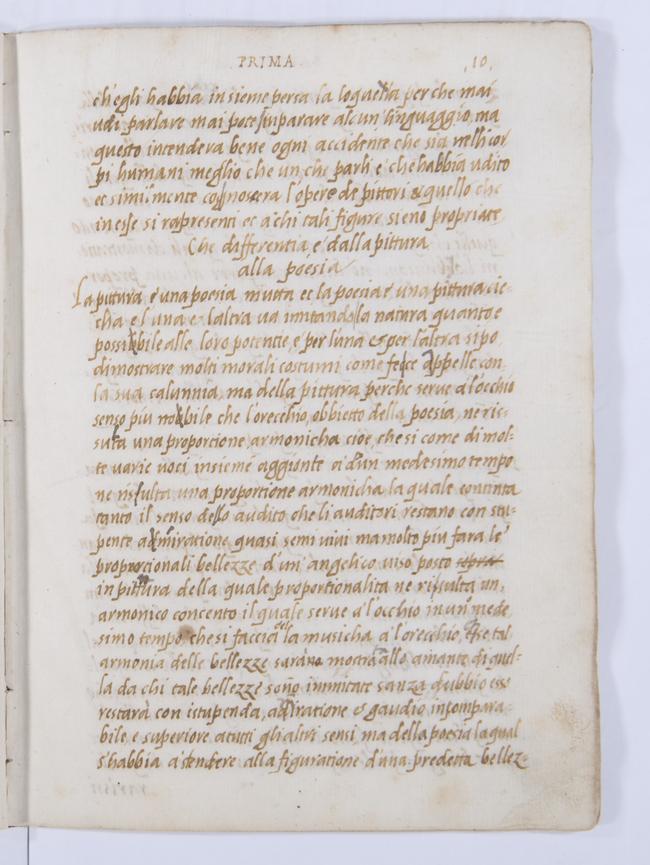 PRIMA 10
ch'egli habbia insieme persa la loquella perche mai
udi parlare mai pote imparare alcun linguaggio, ma
questo intendera bene ogni accidente che sia nelli cor
pi humani meglio che un che parli e c'hehabbia udito
et similmente cognoscera l'opere de pittori & quello che
in esse si rapresenti et a chi tali figure sieno propriate
Che differentia e dalla pittura
alla poesia
La pittura è una poesia muta et la poesia è una pittura cie-
cha e l'una e laltra va imitando la natura quanto e
possibbile alle loro potentie, e per luna & per laltra si po
dimostrare molti morali costumi come fece appelle con
la sua calunnia, ma della pittura perche serve a l'occhio
senso più nobbile che l'orecchio, obbietto della poesia, ne ris-
sulta una proportione armonicha cioè, che si come di mol-
te varie voci insieme aggionte ad'un medesimo tempo
ne risulta una proportione armonicha la quale contenta
tanto il senso dello audito che li auditori restano con stu-
pente admiratione quasi semi vivi ma molto più fara le
proporcionali bellezze d'un' angelico viso posto
in pittura della quale proportionalita ne rissulta un
armonico concento il quale serve a l'occhio in un' mede
simo tempo che si faccia della musicha a l'orecchio, & se tal
armonia delle bellezze sarano mostra allo amante di quel-
la da chi tale bellezze sono immitate sanza dubbio esso
restarà con istupenda, admiratione & gaudio incompara-
bile e superiore a tutti gli altri sensi ma della poesia la qual
s'habbia a stendere alla figuratione d'una predetta bellez-